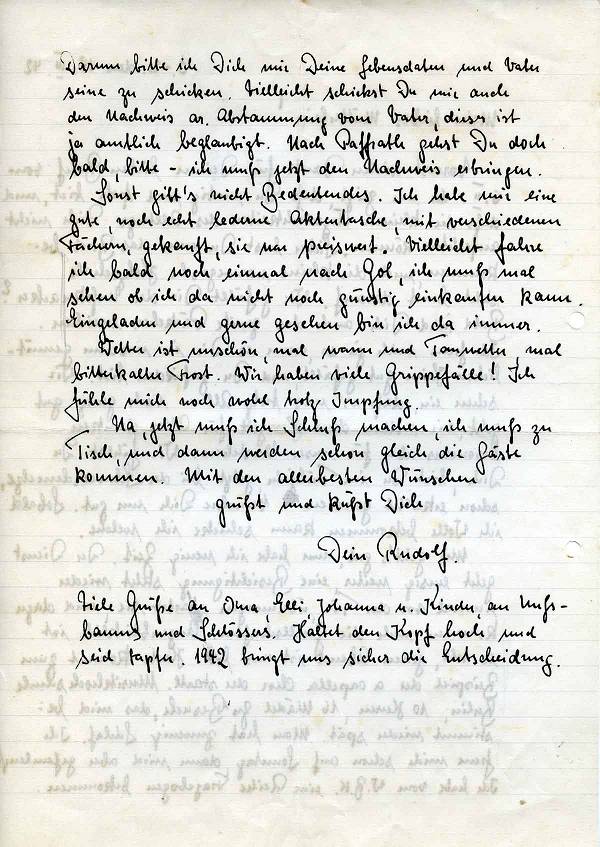 Darum bitte ich Dich mir Deine Lebensdaten und Vater
seine zu schicken. Vielleicht schickst Du mir auch
den Nachweis ar. Abstammung vom Vater, dieser ist
ja amtlich beglaubigt. Nach Paffrath gehst Du doch
bald, bitte - ich muß jetzt den Nachweis erbringen.
Sonst gibt's nicht Bedeutendes. Ich habe mir eine
gute, noch echt lederne Aktentasche, mit verschiedenen
Fächern, gekauft, sie war preiswert. Vielleicht fahre
ich bald noch einmal nach Gol, ich muß mal
sehen ob ich da nicht noch günstig einkaufen kann.
Eingeladen und gerne gesehen bin ich da immer.
Wetter ist unschön, mal warm und Tauwetter, mal
bitterkalter Frost. Wir haben viele Grippefälle! Ich
fühle mich noch wohl trotz Impfung.
Na, jetzt muß ich Schluß machen, ich muß zu
Tisch, und dann werden schon gleich die Gäste
kommen. Mit den allerbesten Wünschen
grüßt und küßt Dich
Dein Rudolf.
Viele Grüße an Oma, Elli, Johanna u. Kinder, an Nuß-
baums und Schlössers. Haltet den Kopf hoch und
seid tapfer. 1942 bringt uns sicher die Entscheidung.